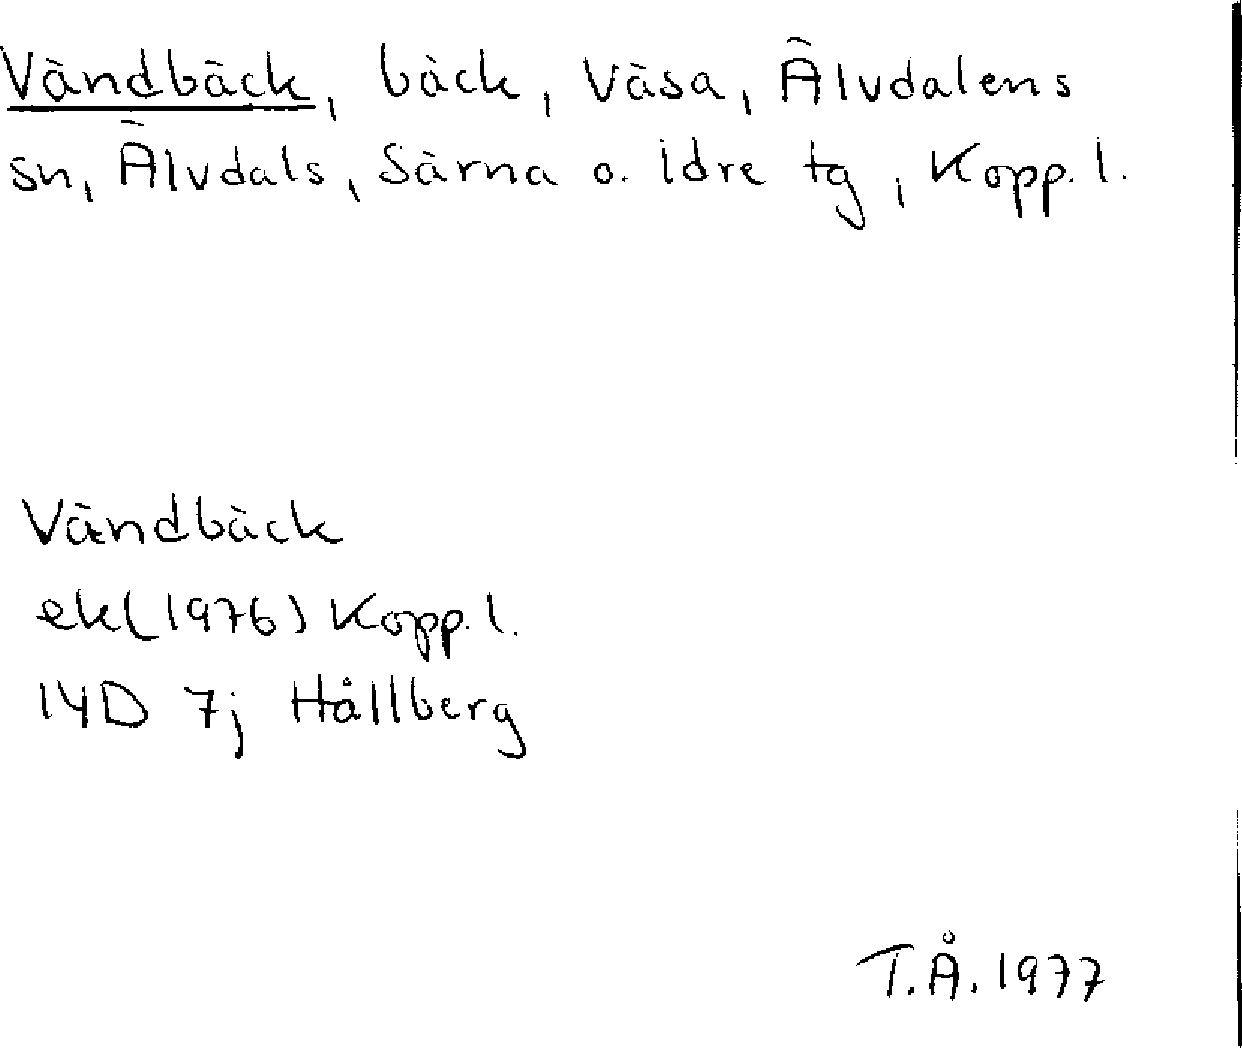 Vändbäck, bäck, Väsa, Älvdalens
sn, Älvdals, Särna o. Idre tg, Kopp. l.
Vändbäck
ek (1976) Kopp. l.
14D 7j Hållberg
T.Å. 1977